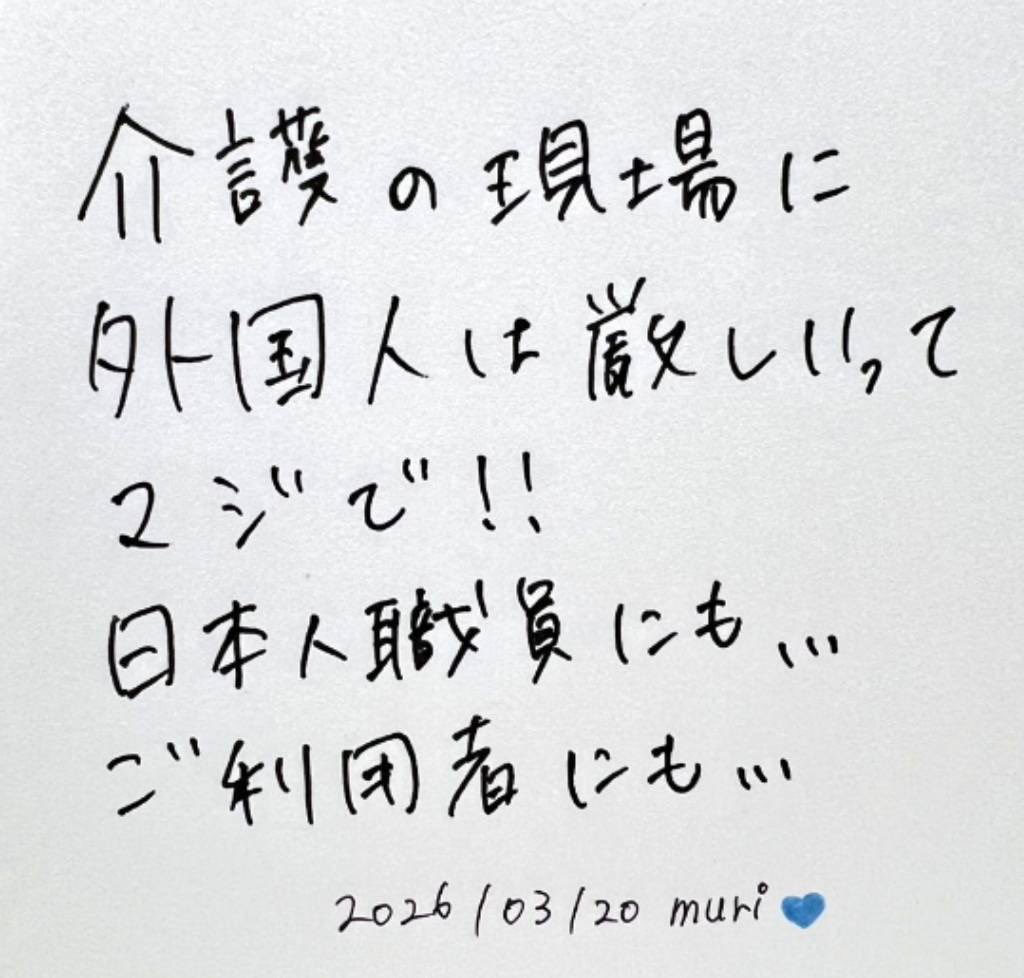 介護の現場に
外国人は厳しいって
マジで!!
日本人職員にも...
ご利用者にも...
2026/03/20 muri💙